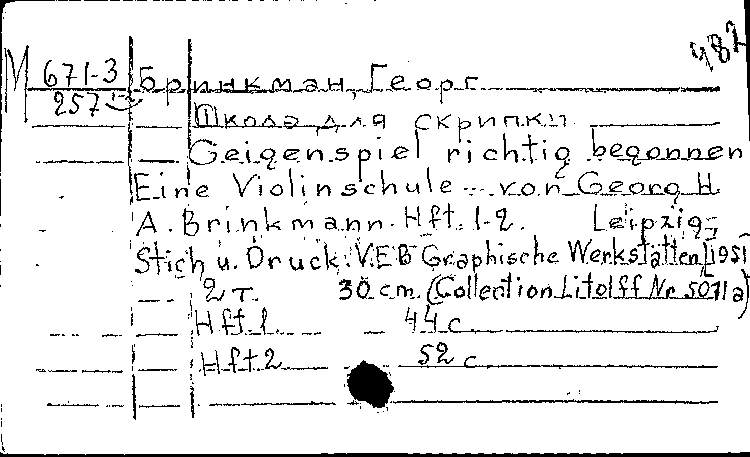 482
М 671-3 Бринкман, Георг
257
Школа для скрипки
Geigenspiel richtig begonnen
Eine Violinschule ... von Georg H.
A. Brinkmann. Hft. 1-2. Leipzig,
Stich u. Druck: VEB Graphische Werkstätten, [1951]
2 т. 30 cm. (Collection Litolff Nr 5011a)
Hft 1. 44 с
Hft 2 52 с